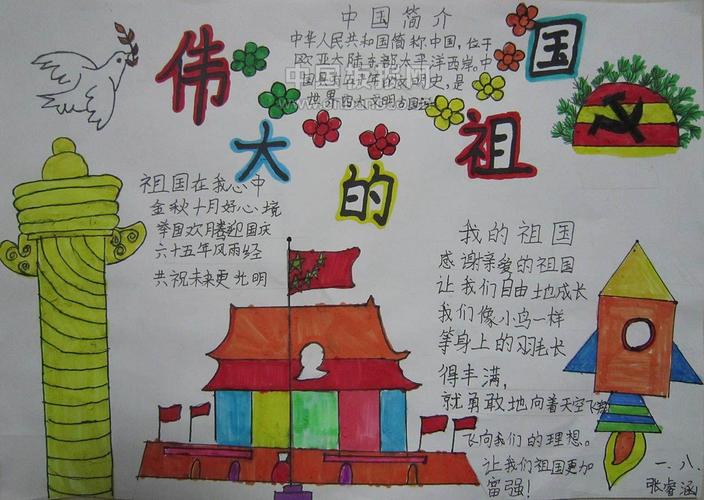 中国简介
中华人民共和国简称中国，位于
欧亚大陆东部太平洋西岸。中
国具有五千年的文明史，是
世界四大文明古国
伟大的祖国
祖国在我心中
金秋十月好心境
举国欢腾迎国庆
六十五年风雨经
共祝未来更光明
我的祖国
感谢亲爱的祖国
让我们自由地成长
我们像小鸟一样
等身上的羽毛长
得丰满，
就勇敢地向着天空飞翔
飞向我们的理想。
让我们祖国更加
富强！
一.八.
张睿涵